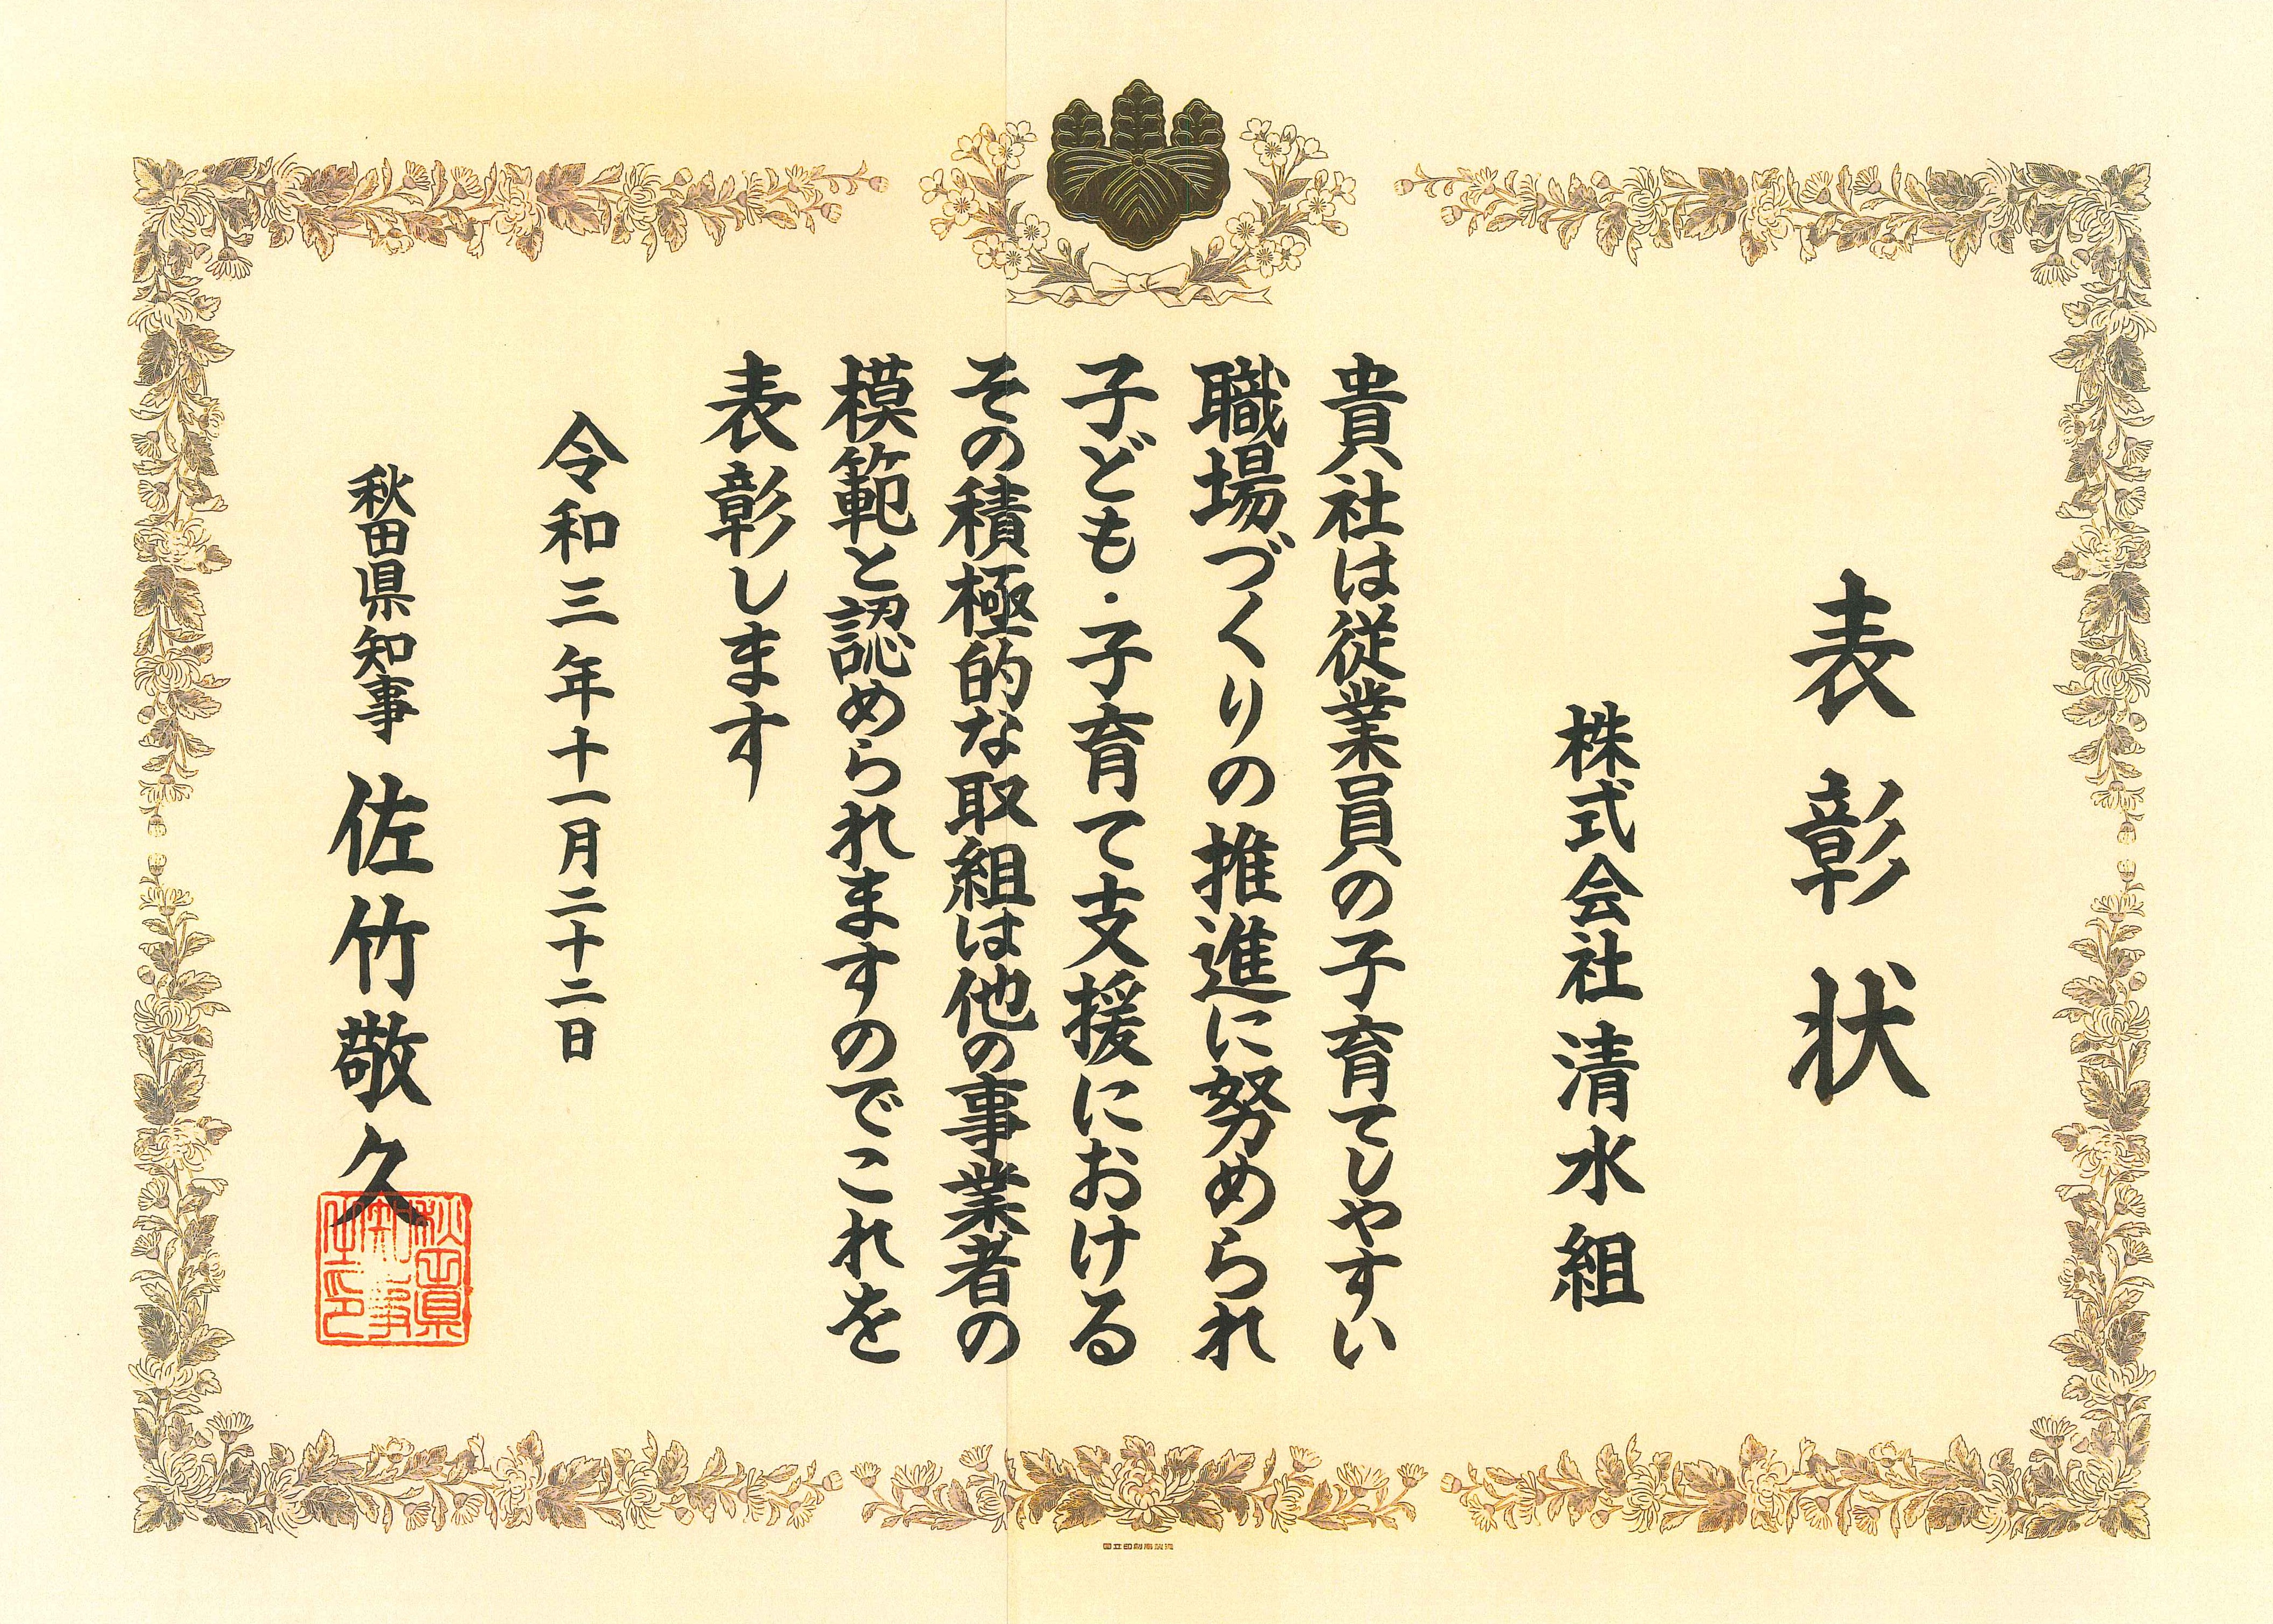 表彰状
株式会社 清水組
貴社は従業員の子育てしやすい
職場づくりの推進に努められ
子ども・子育て支援における
その積極的な取組は他の事業者の
模範と認められますのでこれを
表彰します
令和三年十一月二十二日
秋田県知事 佐竹敬久